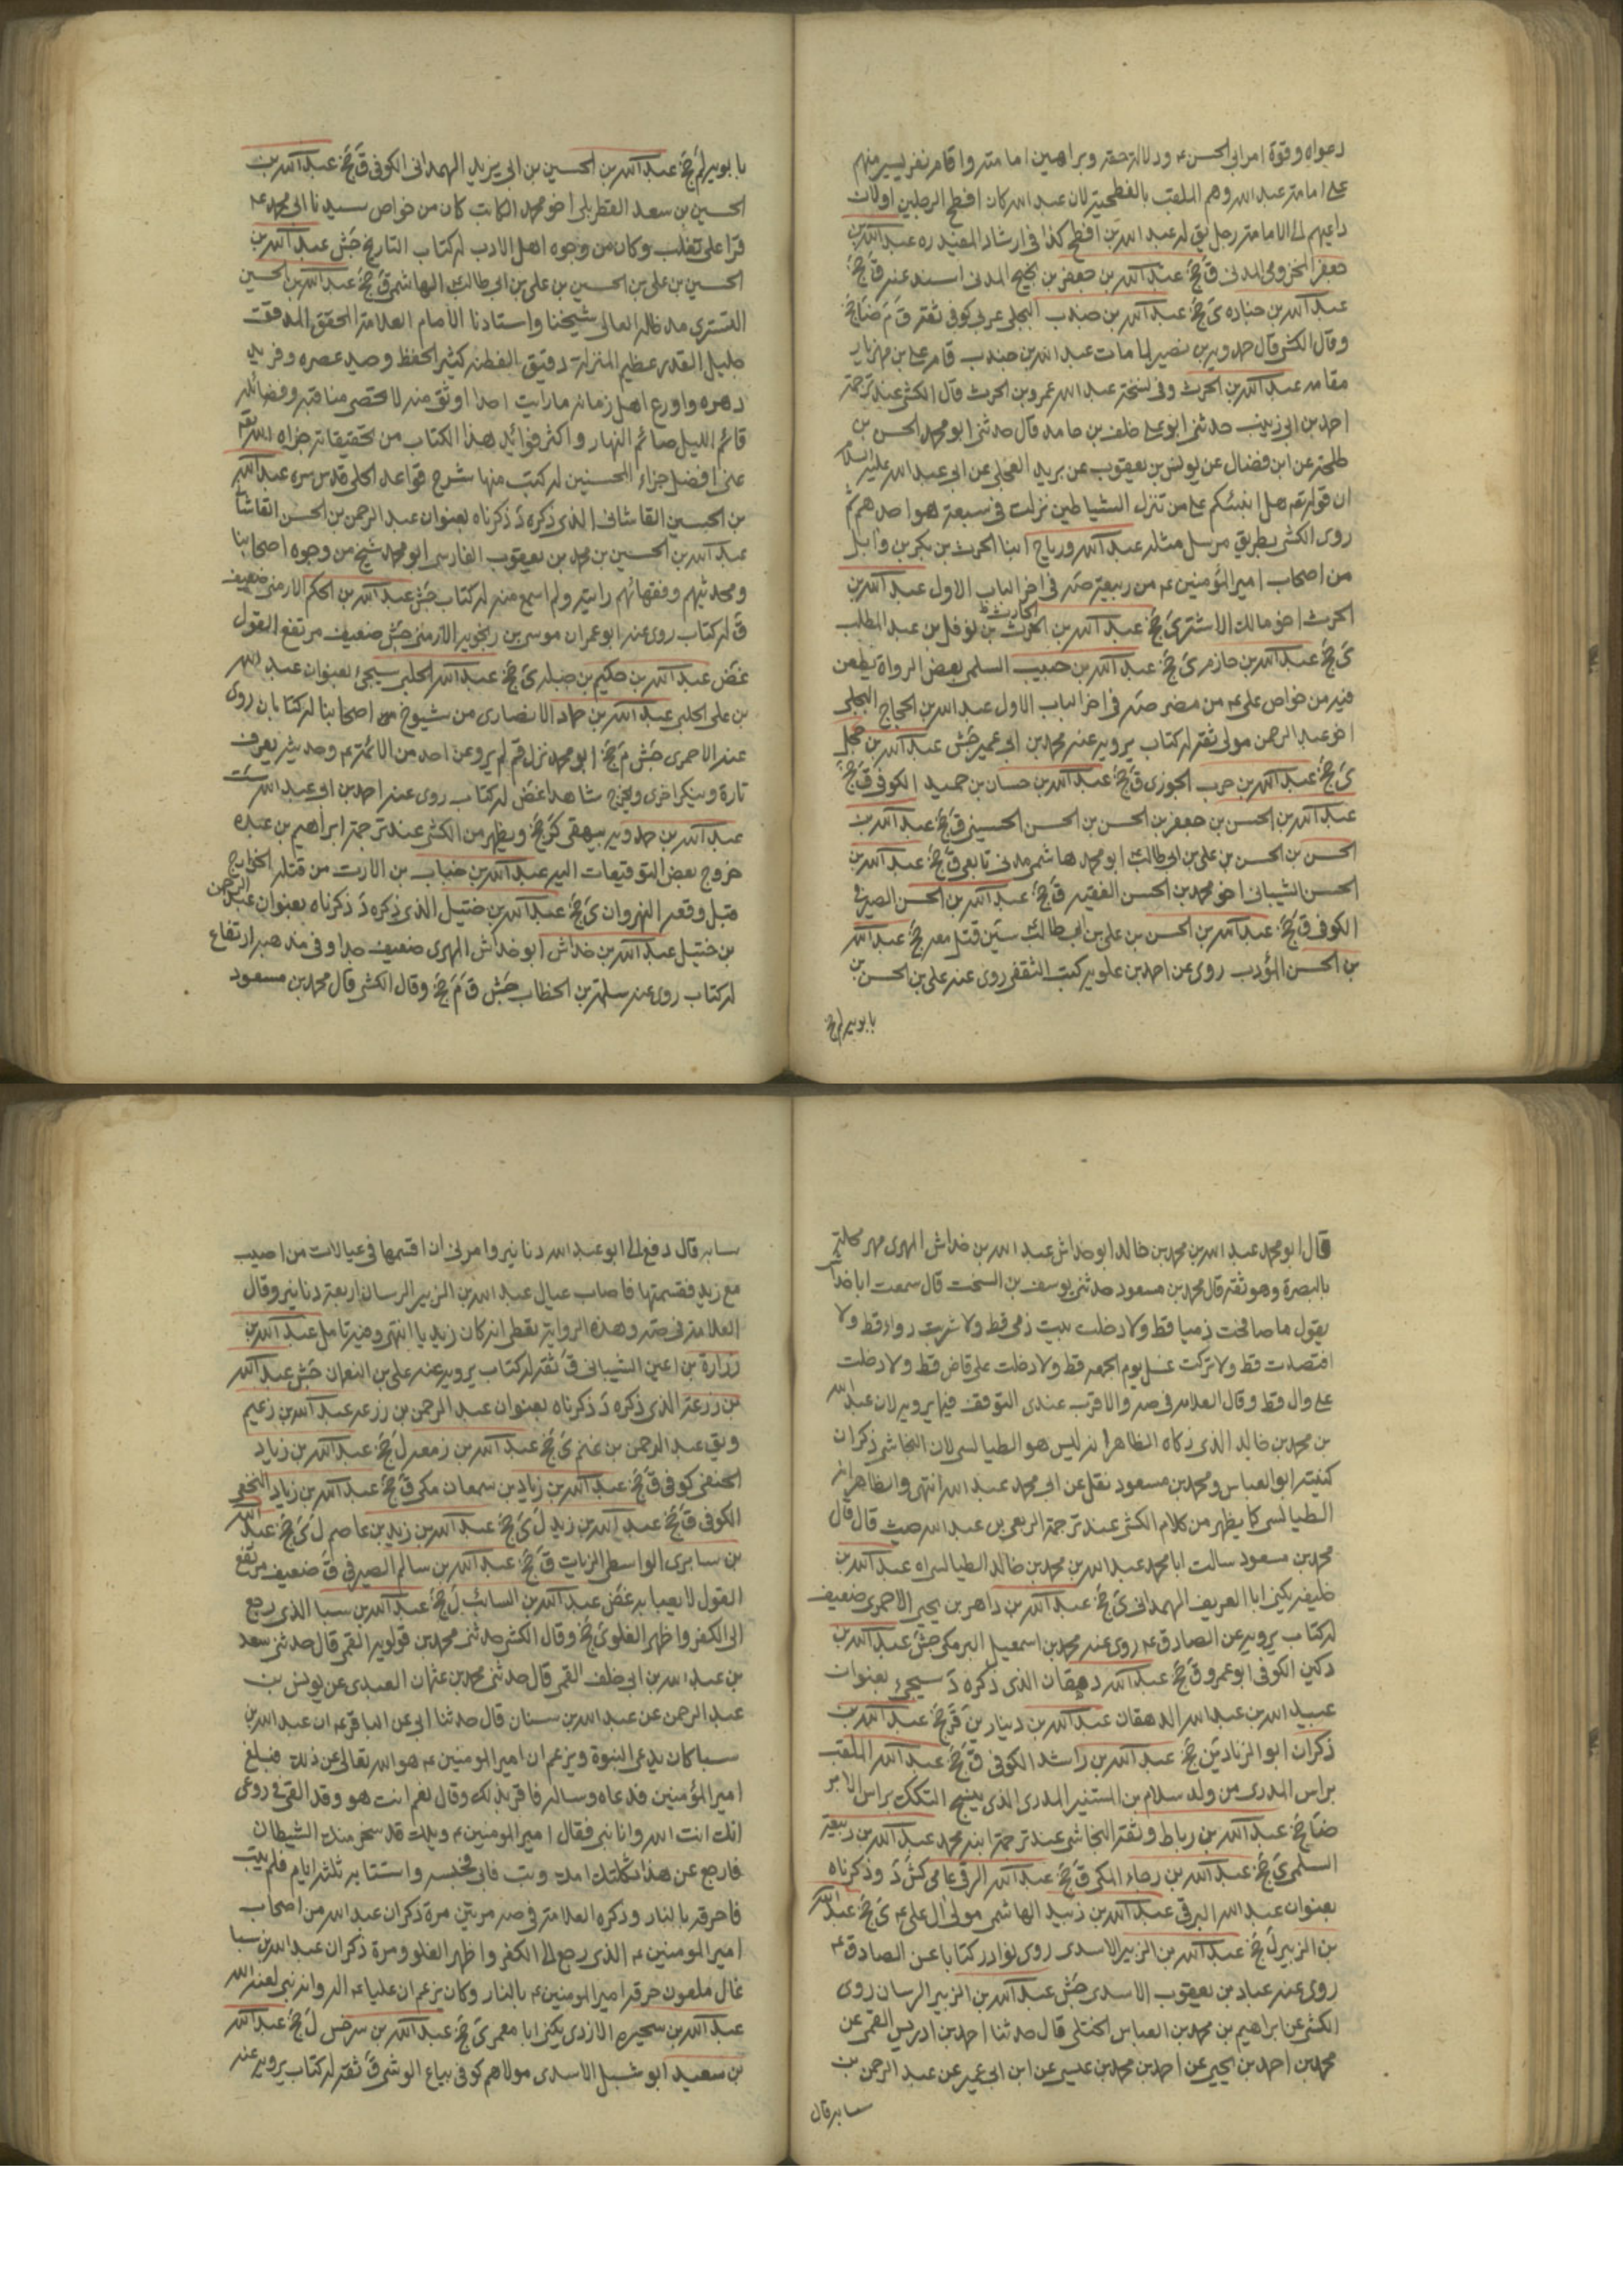 دعواه وقوة امر ابي الحسن عم ودلالة حقه وبراهين امامته واقام نفر يسير منهم
على امامة عبد الله وهم الملقب بالفطحية لان عبد الله كان افطح الرجلين اولان
داعيهم الى الامامة رجل يق له عبد الله بن افطح كذا في ارشاد المفيد ره عبد الله بن
جعفر المخزومي المدني ق جخ عبد الله بن جعفر بن نجيح المدني اسند عنه ق جخ
عبد الله بن جناده ى جخ عبد الله بن جندب البجلي عربي كوفي ثقة ق م ضا جخ
وقال الكشي قال حمدويه بن نصير لما مات عبد الله بن جندب قام علي بن مهزيار
مقامه عبد الله بن الحرث وفي نسخة عبد الله عمرو بن الحرث قال الكشي عند ترجمة
احمد بن ابي زينب حدثني ابو علي خلف بن حامد قال حدثني ابو محمد الحسن بن
طلحة عن ابن فضال عن يونس بن يعقوب عن بريد العجلي عن ابي عبد الله عليه السلام
ان قوله تعم هل انبئكم على من تنزل الشياطين نزلت في سبعة هو احدهم ثم
روى الكشي بطريق مرسل مثله عبد الله ورباح ابنا الحرث بن بكر بن وائل
من اصحاب امير المؤمنين عم من ربيعة صه في اخر الباب الاول عبد الله بن
الحرث اخو مالك الاشتر ى جخ عبد الله بن الحرث بن نوفل بن عبد المطلب
ى جخ عبد الله بن حازم ى جخ عبد الله بن حبيب السلمي بعض الرواة يطعن
فيه من خواص علي عم من مضر صه في اخر الباب الاول عبد الله بن الحجاج البجلي
اخو عبد الرحمن مولى ثقة له كتاب يرويه عنه محمد بن ابي عمير جش عبد الله بن حجل
ى جخ عبد الله بن حرب الجوزي ق جخ عبد الله بن حسان بن حميد الكوفي ق جخ
عبد الله بن الحسن بن جعفر بن الحسن بن الحسن الحسيني ق جخ عبد الله بن
الحسن بن الحسن بن علي بن ابي طالب ابو محمد هاشمي مدني تابعي ق جخ عبد الله بن
الحسن الشيباني اخو محمد بن الحسن الفقيه ق جخ عبد الله بن الحسن الصيرفي
الكوفي ق جخ عبد الله بن الحسن بن علي بن ابي طالب سين قتل معه جخ عبد الله
بن الحسن المؤدب روى عن احمد بن علويه كتب الثقفي روى عنه علي بن الحسن بن
بابويه لم جخ
بابويه لم جخ عبد الله بن الحسين بن ابي يزيد الهمداني الكوفي ق جخ عبد الله بن
الحسين بن سعد القطربلي اخو محمد الكاتب كان من خواص سيدنا ابي محمد عم
قرا على ثغلب وكان من وجوه اهل الادب له كتاب التاريخ جش عبد الله بن
الحسين بن علي بن الحسين بن علي بن ابي طالب الهاشمي ق جخ عبد الله بن الحسين
التستري مد ظله العالي شيخنا واستادنا الامام العلامة المحقق المدقق
جليل القدر عظيم المنزلة دقيق الفطنه كثير الحفظ وحيد عصره وفريد
دهره واورع اهل زمانه ما رايت احدا اوثق منه لا تحصى مناقبه وفضائله
قائم الليل صائم النهار واكثر فوائد هذا الكتاب من تحقيقاته جزاه الله تعم
عني افضل جزاء المحسنين له كتب منها شرح قواعد الحلي قدس سره عبد الله
بن الحسين القاشاني الذي ذكره د ذكرناه بعنوان عبد الرحمن بن الحسن القاشاني
عبد الله بن الحسين بن محمد بن يعقوب الفارسي ابو محمد شيخ من وجوه اصحابنا
ومحدثيهم وفقهائهم رايته ولم اسمع منه له كتاب جش عبد الله بن الحكم الارمني ضعيف
ق له كتاب روى عنه ابو عمران موسى بن رنجويه الارمني جش ضعيف مرتفع القول
غض عبد الله بن حكيم بن جبله ى جخ عبد الله الحلبي سيجئ بعنوان عبد الله
بن علي الحلبي عبد الله بن حماد الانصاري من شيوخ من اصحابنا له كتابان روى
عنه الاحمري جش م جخ ابو محمد نزل قم لم يرو عن احد من الائمة عم وحديثه يعرف
تارة وينكر اخرى ويخرج شاهدا غض له كتاب روى عنه احمد بن ابي عبد الله ست
عبد الله بن حمدويه بيهقي كر جخ ويظهر من الكشي عند ترجمة ابراهيم بن عبده
خروج بعض التوقيعات اليه عبد الله بن خباب بن الارت من قتله الخوارج
قبل وقعه النهروان ى جخ عبد الله بن ختيل الذي ذكره د ذكرناه بعنوان عبد الرحمن
بن ختيل عبد الله بن خداش ابو خداش المهري ضعيف جدا وفي مذهبه ارتفاع
له كتاب روى عنه سلمة بن الخطاب جش ق م جخ وقال الكشي قال محمد بن مسعود
قال ابو محمد عبد الله بن محمد بن خالد ابو خداش عبد الله بن خداش المهري مهر محلة
بالبصرة وهو ثقة قال محمد بن مسعود حدثني يوسف بن السخت قال سمعت ابا خداش
يقول ما صافحت ذميا قط ولا دخلت بيت ذمي قط ولا شربت دواء قط ولا
افتصدت قط ولا تركت غسل يوم الجمعه قط ولا دخلت على قاض قط ولا دخلت
على وال قط وقال العلامه في صه والاقرب عندي التوقف فيما يرويه لان عبد الله
بن محمد بن خالد الذي زكاه الظاهر انه ليس هو الطيالسي لان النجاشي ذكر ان
كنيته ابو العباس ومحمد بن مسعود نقل عن ابي محمد عبد الله انتهى والظاهر انه
الطيالسي كما يظهر من كلام الكشي عند ترجمة الربعي بن عبد الله حيث قال قال
محمد بن مسعود سالت ابا محمد عبد الله بن محمد بن خالد الطيالسي اه عبد الله بن
خليفه يكنى ابا العريف الهمداني ى جخ عبد الله بن داهر بن يحيى الاحمري ضعيف
له كتاب يرويه عن الصادق عم روى عنه محمد بن اسمعيل البرمكي جش عبد الله بن
دكين الكوفي ابو عمرو ق جخ عبد الله دهقان الذي ذكره د سيجئ بعنوان
عبيد الله بن عبد الله الدهقان عبد الله بن دينار ين قر جخ عبد الله بن
ذكران ابو الزناد ين جخ عبد الله بن راشد الكوفي ق جخ عبد الله الملقب
براس المدري من ولد سلام بن المستنير المدري الذي ينسج التكك براس الامر
ضا جخ عبد الله بن رباط وثقه النجاشي عند ترجمة ابنه محمد عبد الله بن ربيعه
السلمي ى جخ عبد الله بن رجاء المكي ق جخ عبد الله الرقي عامي كش د وذكرناه
بعنوان عبد الله البرقي عبد الله بن زبيد الهاشمي مولى ال علي عم ى جخ عبد الله
بن الزبير ل جخ عبد الله بن الزبير الاسدي روى نوادر كتابا عن الصادق عم
روى عنه عباد بن يعقوب الاسدي جش عبد الله بن الزبير الرسان روى
الكشي عن ابراهيم بن محمد بن العباس الختلي قال حدثنا احمد بن ادريس القمي عن
محمد بن احمد بن يحيى عن احمد بن محمد بن عيسى عن ابن ابي عمير عن عبد الرحمن بن
سيابه قال
سيابه قال دفع الي ابو عبد الله دنانير وامرني ان اقسمها في عيالات من اصيب
مع زيد فقسمتها فاصاب عيال عبد الله بن الزبير الرسان اربعة دنانير وقال
العلامة في صه وهذه الرواية تعطي انه كان زيديا انتهى وفيه تامل عبد الله بن
زرارة بن اعين الشيباني ق ثقة له كتاب يرويه عنه علي بن النعمان جش عبد الله
بن زرعة الذي ذكره د ذكرناه بعنوان عبد الرحمن بن زرعه عبد الله بن زعيم
ويق عبد الرحمن بن غنم ى جخ عبد الله بن زمعه ل جخ عبد الله بن زياد
الحنفي كوفي ق جخ عبد الله بن زياد بن سمعان مكي ق جخ عبد الله بن زياد النخعي
الكوفي ق جخ عبد الله بن زيد ل ى جخ عبد الله بن زيد بن عاصم ل ى جخ عبد الله
بن سابري الواسطي الزيات ق جخ عبد الله بن سالم الصيرفي ق ضعيف مرتفع
القول لا يعبا به غض عبد الله بن السائب ل جخ عبد الله بن سبا الذي رجع
الى الكفر واظهر الغلو ى جخ وقال الكشي حدثني محمد بن قولويه القمي قال حدثني سعد
بن عبد الله بن ابي خلف القمي قال حدثني محمد بن عثمان العبدي عن يونس بن
عبد الرحمن عن عبد الله بن سنان قال حدثنا ابي عن الباقر عم ان عبد الله بن
سبا كان يدعي النبوة ويزعم ان امير المومنين عم هو الله تعالى عن ذلك فبلغ
امير المؤمنين فدعاه وساله فاقر بذلك وقال نعم انت هو وقد القي في روعي
انك انت الله وانا نبي فقال امير المومنين عم ويلك قد سخر منك الشيطان
فارجع عن هذا ثكلتك امك وتب فابى فحبسه واستتابه ثلثة ايام فلم يتب
فاحرقه بالنار وذكره العلامة في صه مرتين مرة ذكر ان عبد الله من اصحاب
امير المومنين عم الذي رجع الى الكفر واظهر الغلو ومرة ذكر ان عبد الله بن سبا
غال ملعون حرقه امير المومنين عم بالنار وكان يزعم ان عليا عم اله وانه نبي لعنه الله
عبد الله بن سحيره الازدي يكنى ابا معمر ى جخ عبد الله بن سرخس ل جخ عبد الله
بن سعيد ابو شبل الاسدي مولاهم كوفي بياع الوشي ق ثقة له كتاب يرويه عنه